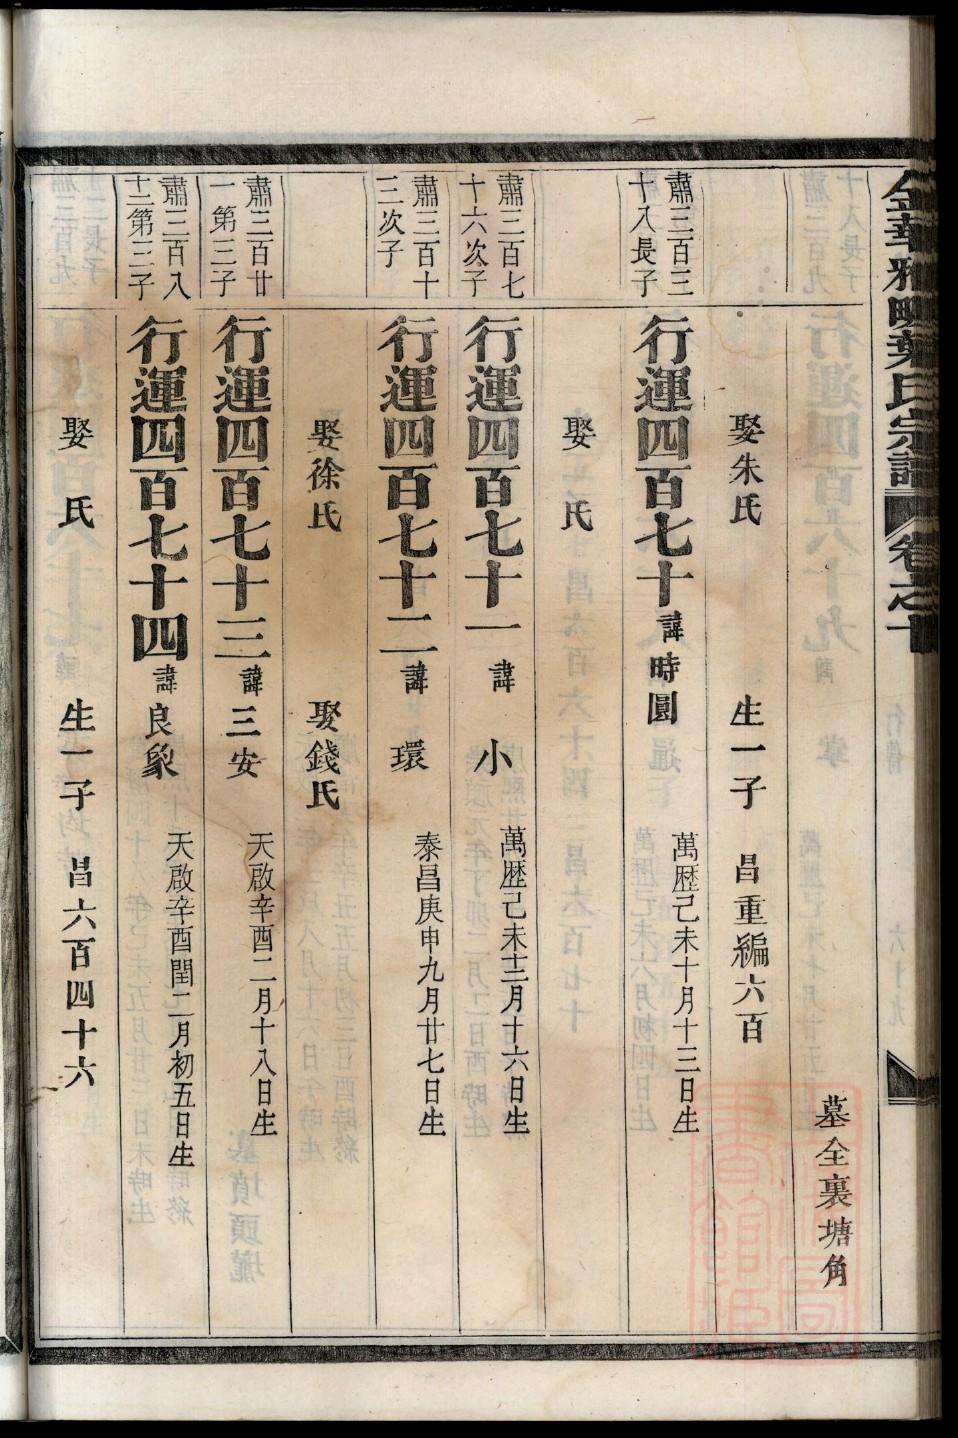 金華雅畈葉氏宗譜 卷之十
墓全裏塘角
娶朱氏 生一子 昌重編六百
肅三百三
十八長子
行運四百七十 諱時圓 萬歷己未十月十三日生
娶 氏
肅三百七
十六次子
行運四百七十一 諱 小 萬歷己未十二月十六日生
肅三百十
三次子
行運四百七十二 諱 環 泰昌庚申九月廿七日生
娶徐氏 娶錢氏
肅三百廿
一第三子
行運四百七十三 諱三安 天啟辛酉二月十八日生
肅三百八
十二第三子
行運四百七十四 諱良象 天啟辛酉閏二月初五日生
娶 氏 生一子 昌六百四十六